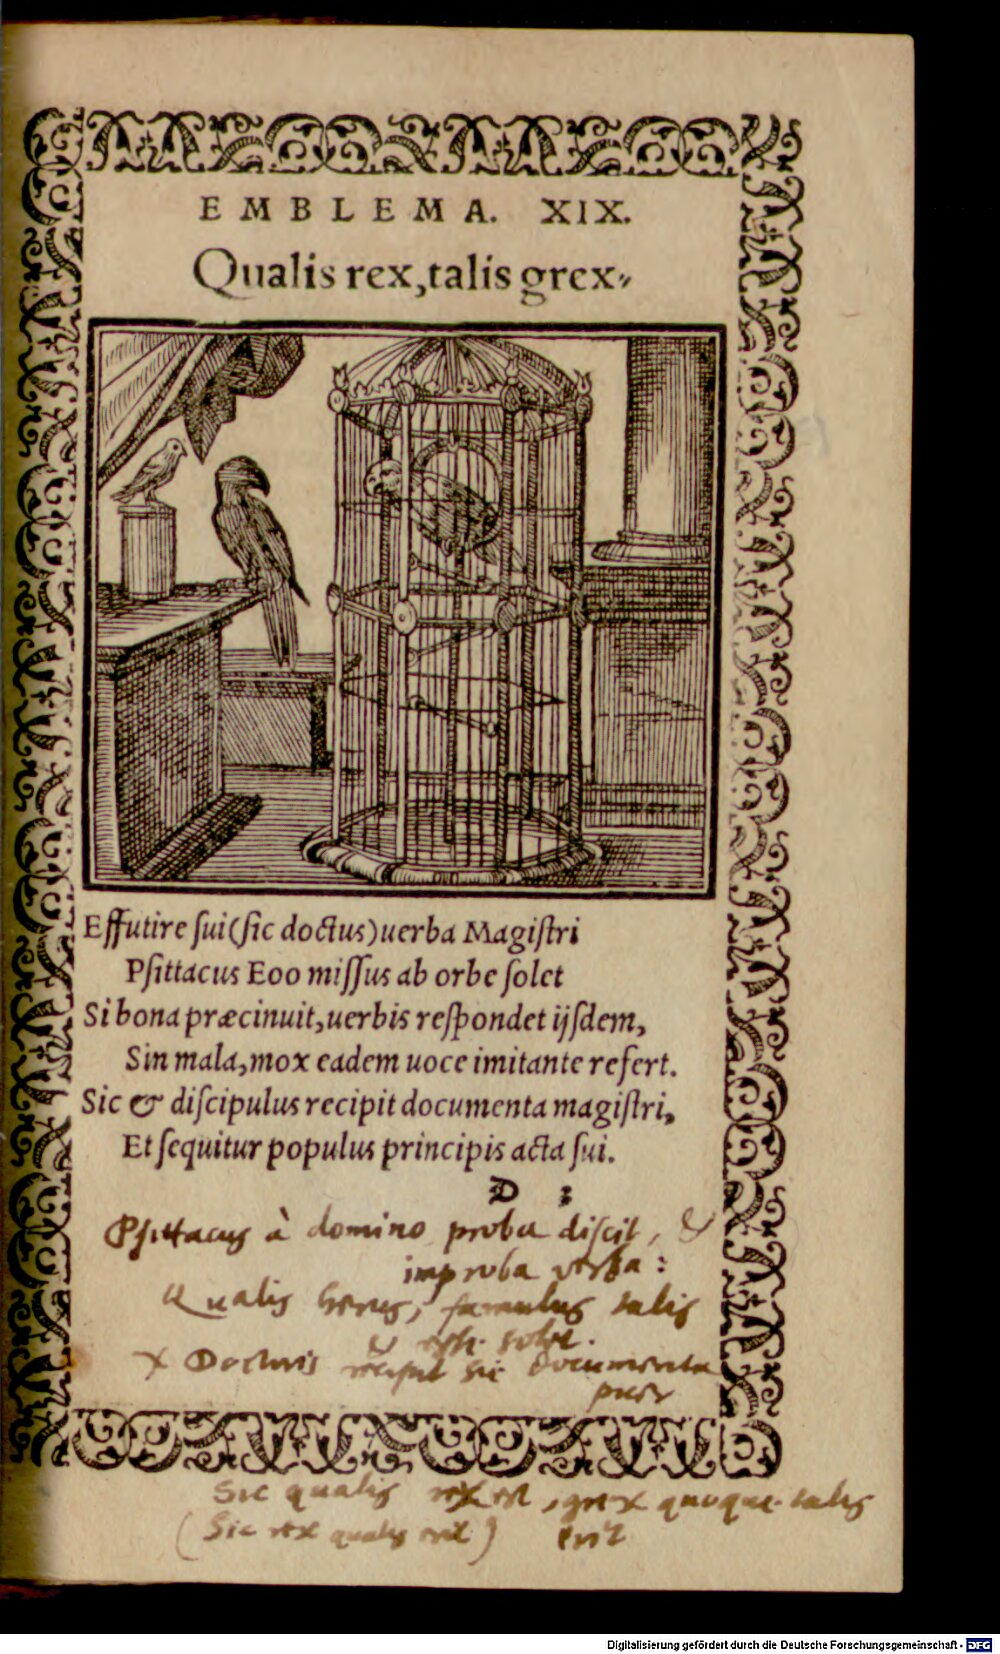 EMBLEMA. XIX.
Qualis rex, talis grex.
Effutire ſui (ſic doctus) uerba Magiſtri
Pſittacus Eoo miſſus ab orbe ſolet
Si bona præcinuit, uerbis reſpondet ijſdem,
Sin mala, mox eadem uoce imitante refert.
Sic & diſcipulus recipit documenta magiſtri,
Et ſequitur populus principis acta ſui.
D :
Pſittacus à domino proba diſcit, &
improba verba :
Qualis herus, famulus talis
& eſſe ſolet.
x Doctoris recipit sic documenta
puer
Sic qualis rex est, grex quoque talis
(Sic rex qualis erit) erit
Digitalisierung gefördert durch die Deutsche Forschungsgemeinschaft - DFG